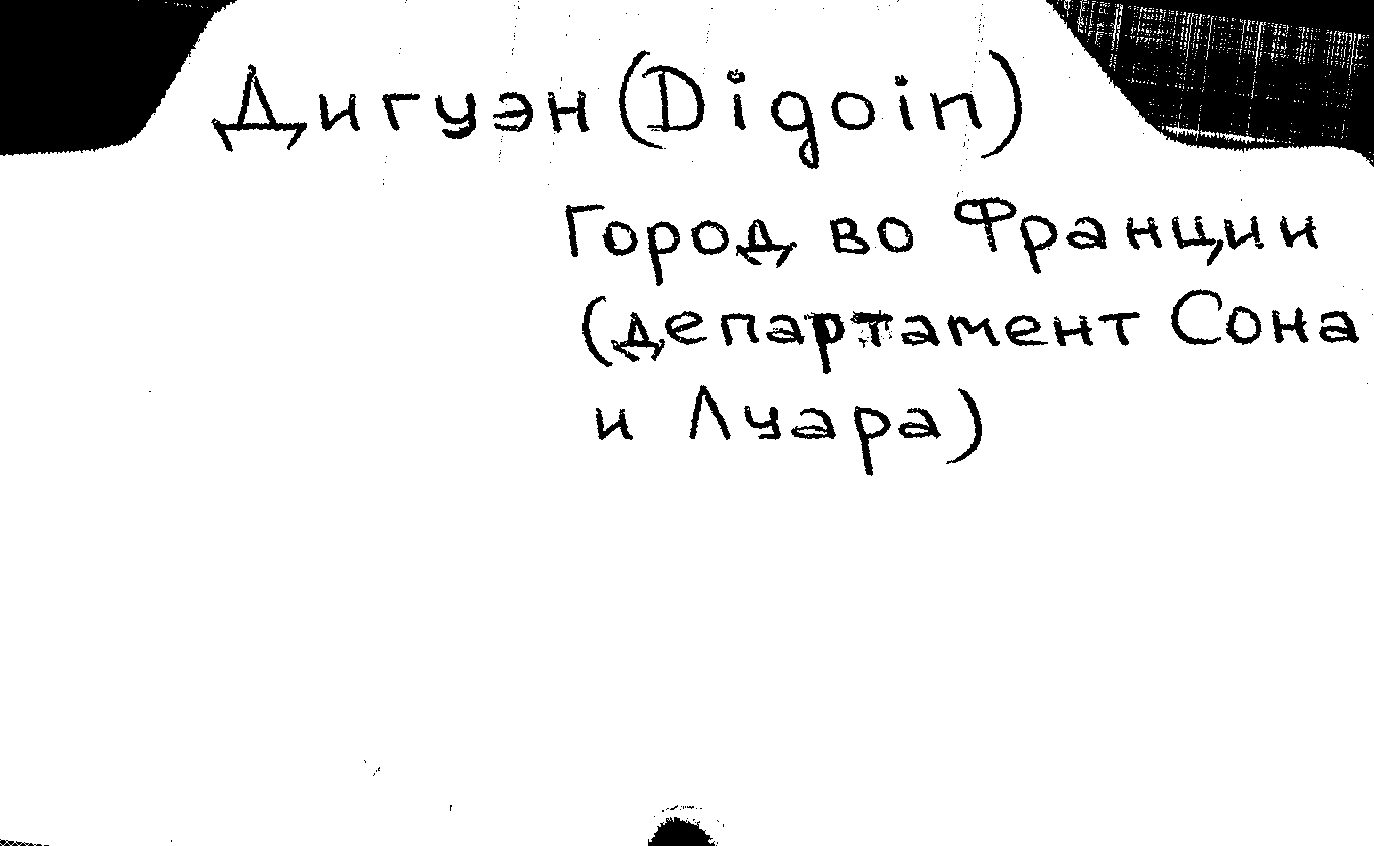 Дигуэн (Digoin)
Город во Франции
(департамент Сона
и Луара)